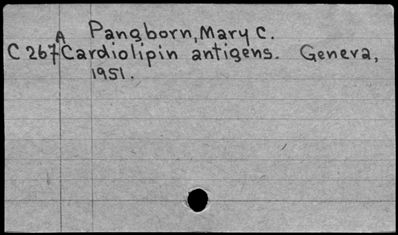 Pangborn, Mary C.
A
C267 Cardiolipin antigens. Geneva,
1951.